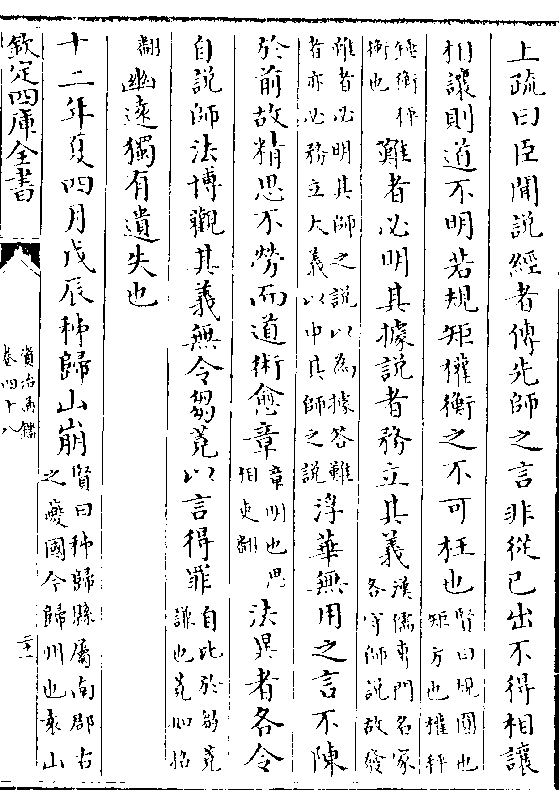 上疏曰臣聞說經者傳先師之言非從己出不得相讓
相讓則道不明若規矩權衡之不可枉也賢曰規圓也
矩方也權秤
錘衡秤
衡也難者必明其據說者務立其義漢儒專門名家
各守師說故發
難者必明其師之說以為據答難
者亦必務立大義以申其師之說浮華無用之言不陳
於前故精思不勞而道術愈章章明也思
相吏翻法異者各令
自說師法博觀其義無令芻蕘以言得罪自比於芻蕘
謙也蕘如招
翻幽遠獨有遺失也
十二年夏四月戊辰秭歸山崩賢曰秭歸縣屬南郡古
之夔國今歸州也袁山
欽定四庫全書
資治通鑑
卷四十八